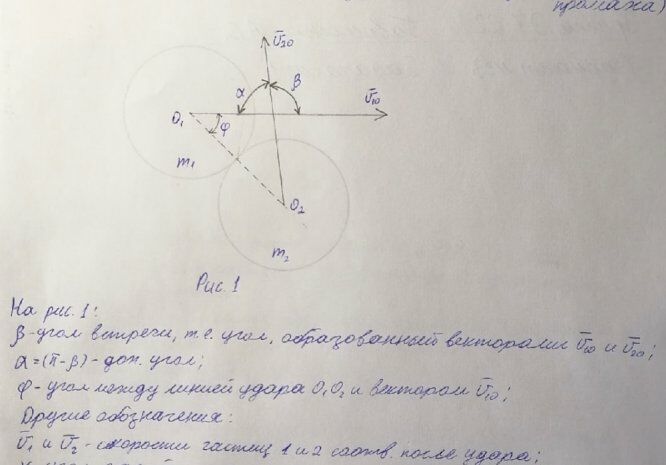 промаха)
Ū₂₀
α
β
Ū₁₀
O₁
φ
m₁
O₂
m₂
Рис. 1
На рис. 1:
β - угол встречи, т.е. угол, образованный векторами Ū₁₀ и Ū₂₀;
α = (π - β) - доп. угол;
φ - угол между линией удара O₁O₂ и вектором Ū₁₀;
Другие обозначения:
Ū₁ и Ū₂ - скорости частиц 1 и 2 соотв. после удара;